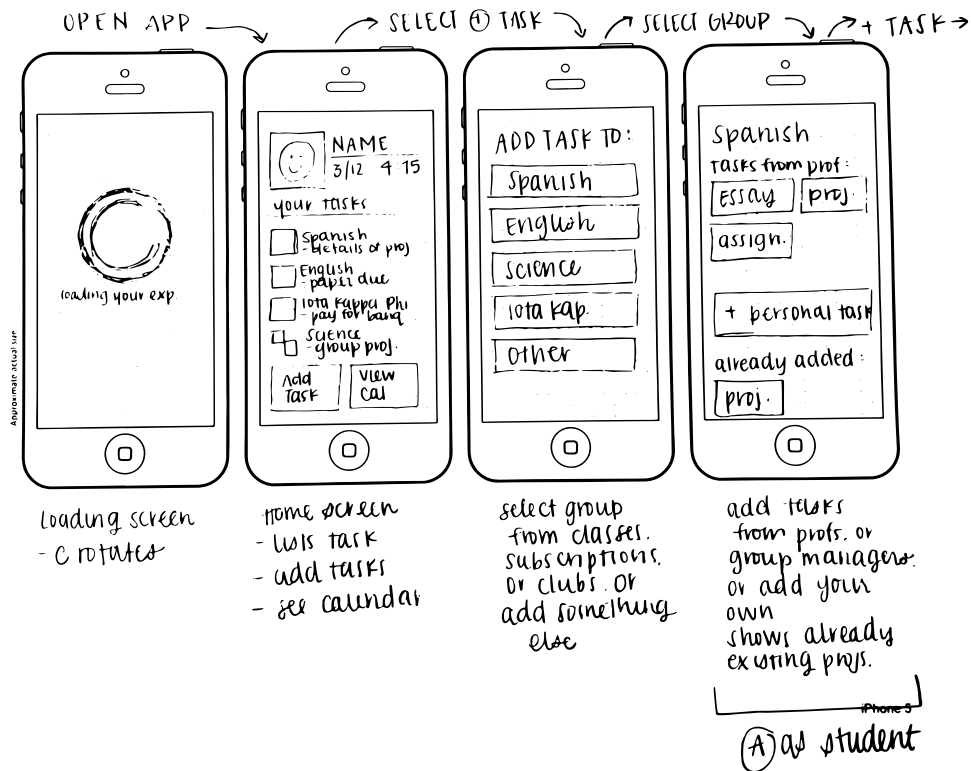 OPEN APP
SELECT + TASK
SELECT GROUP
+ TASK
loading your exp.
Approximate actual size
NAME
3/12 4 15
your tasks
Spanish
- details of proj
English
- paper due
Iota Kappa Phi
- pay for banq
Science
- group proj.
Add
Task
View
Cal
ADD TASK TO:
Spanish
English
Science
iota kap.
Other
Spanish
Tasks from prof:
Essay
proj.
assign.
+ personal task
already added:
proj.
Loading screen
- C rotates
Home screen
- lists task
- add tasks
- see calendar
select group
from classes.
subscriptions,
or clubs. or
add something
else
add tasks
from profs. or
group managers.
or add your
own
shows already
existing projs.
iPhone 5
A as student